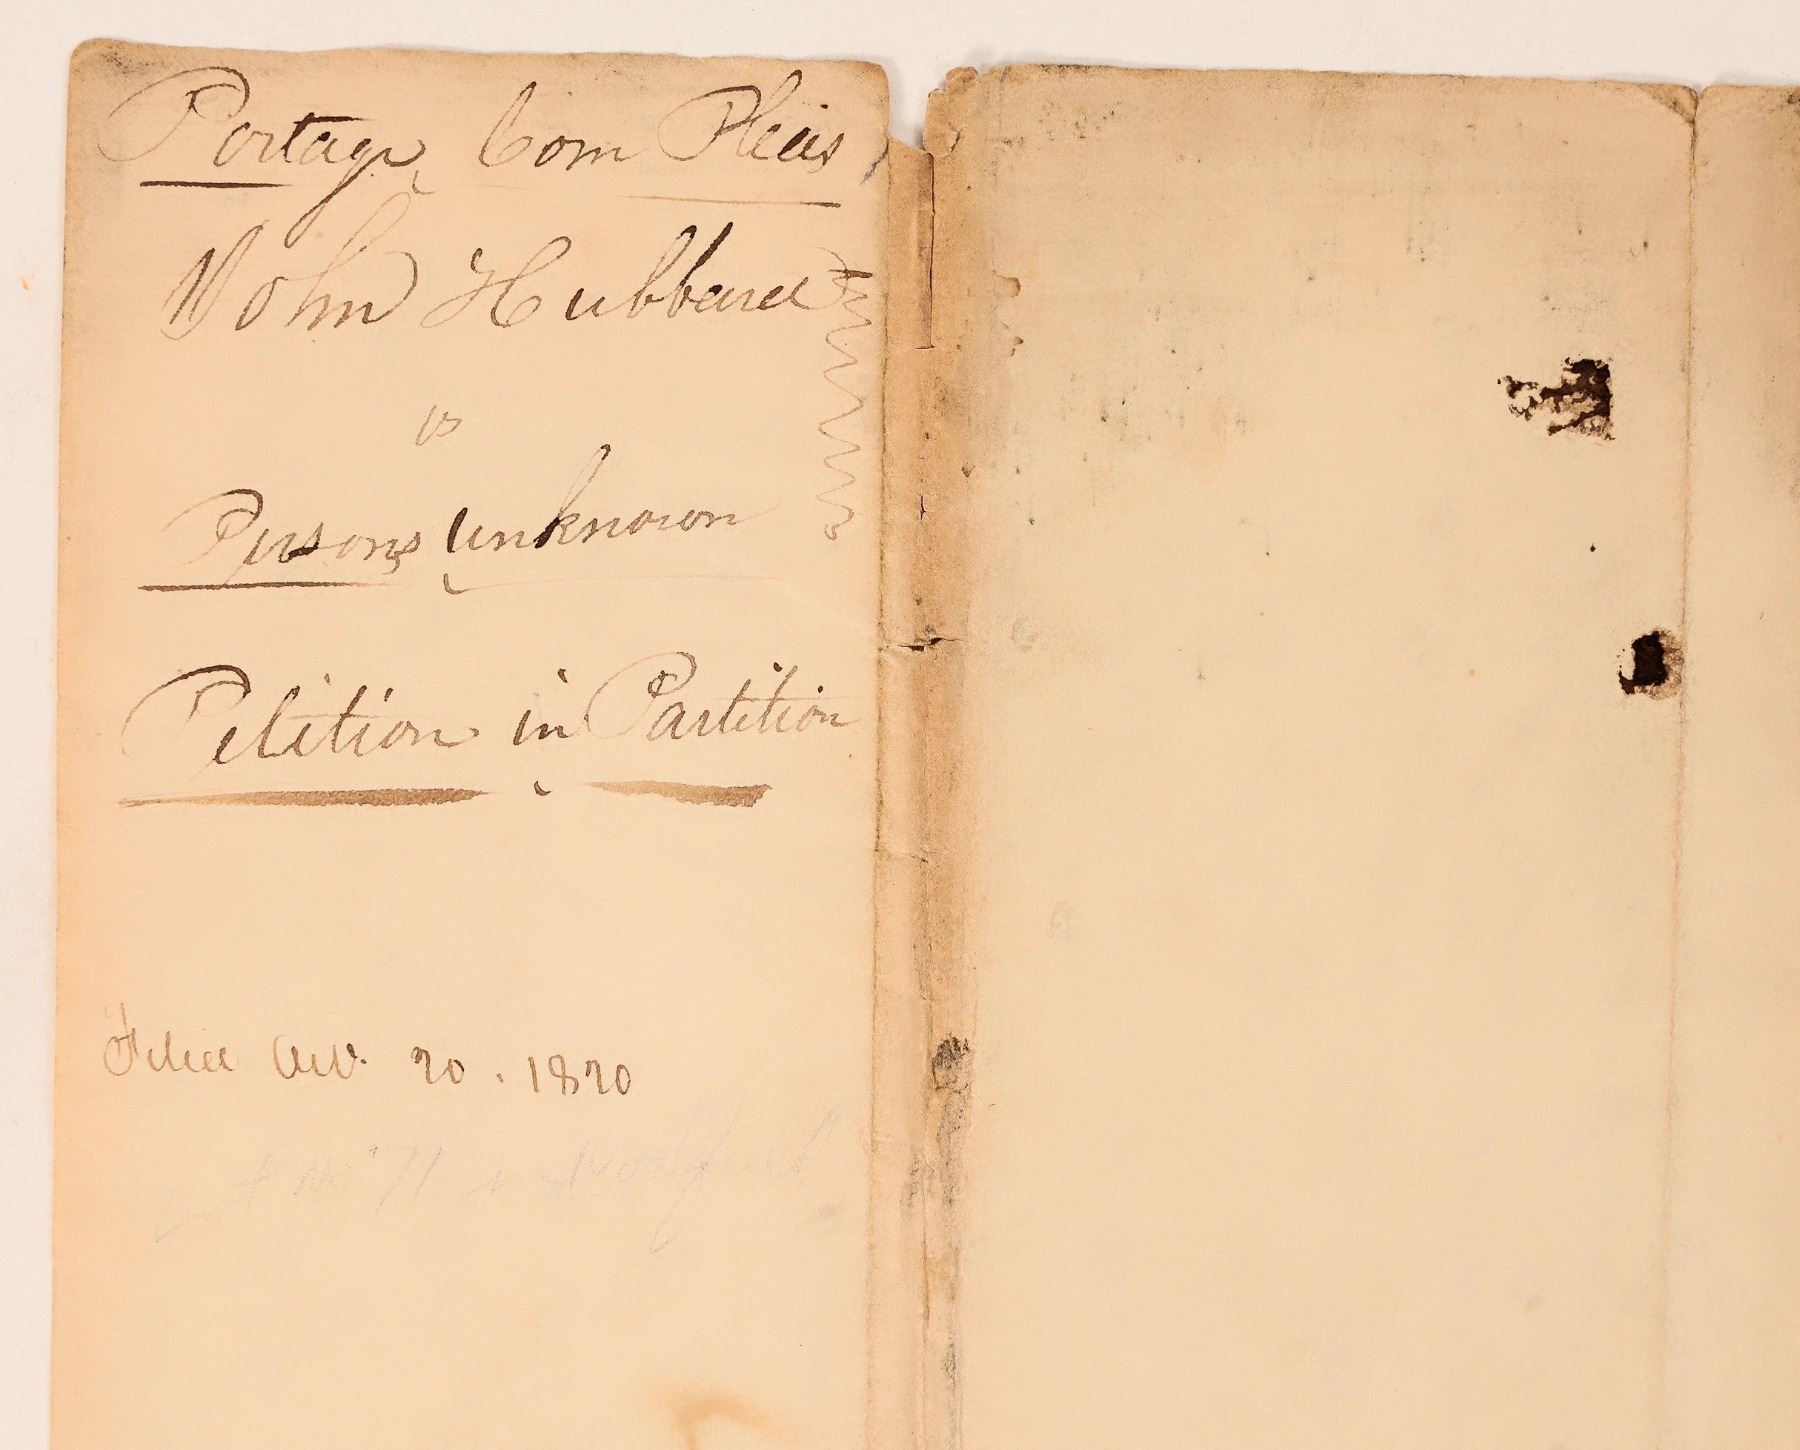 Portage Com Pleas
John Hubbard
vs
Persons unknown
Petition in Partition
Filed 20. 1820
Lot No 71 in Northfield